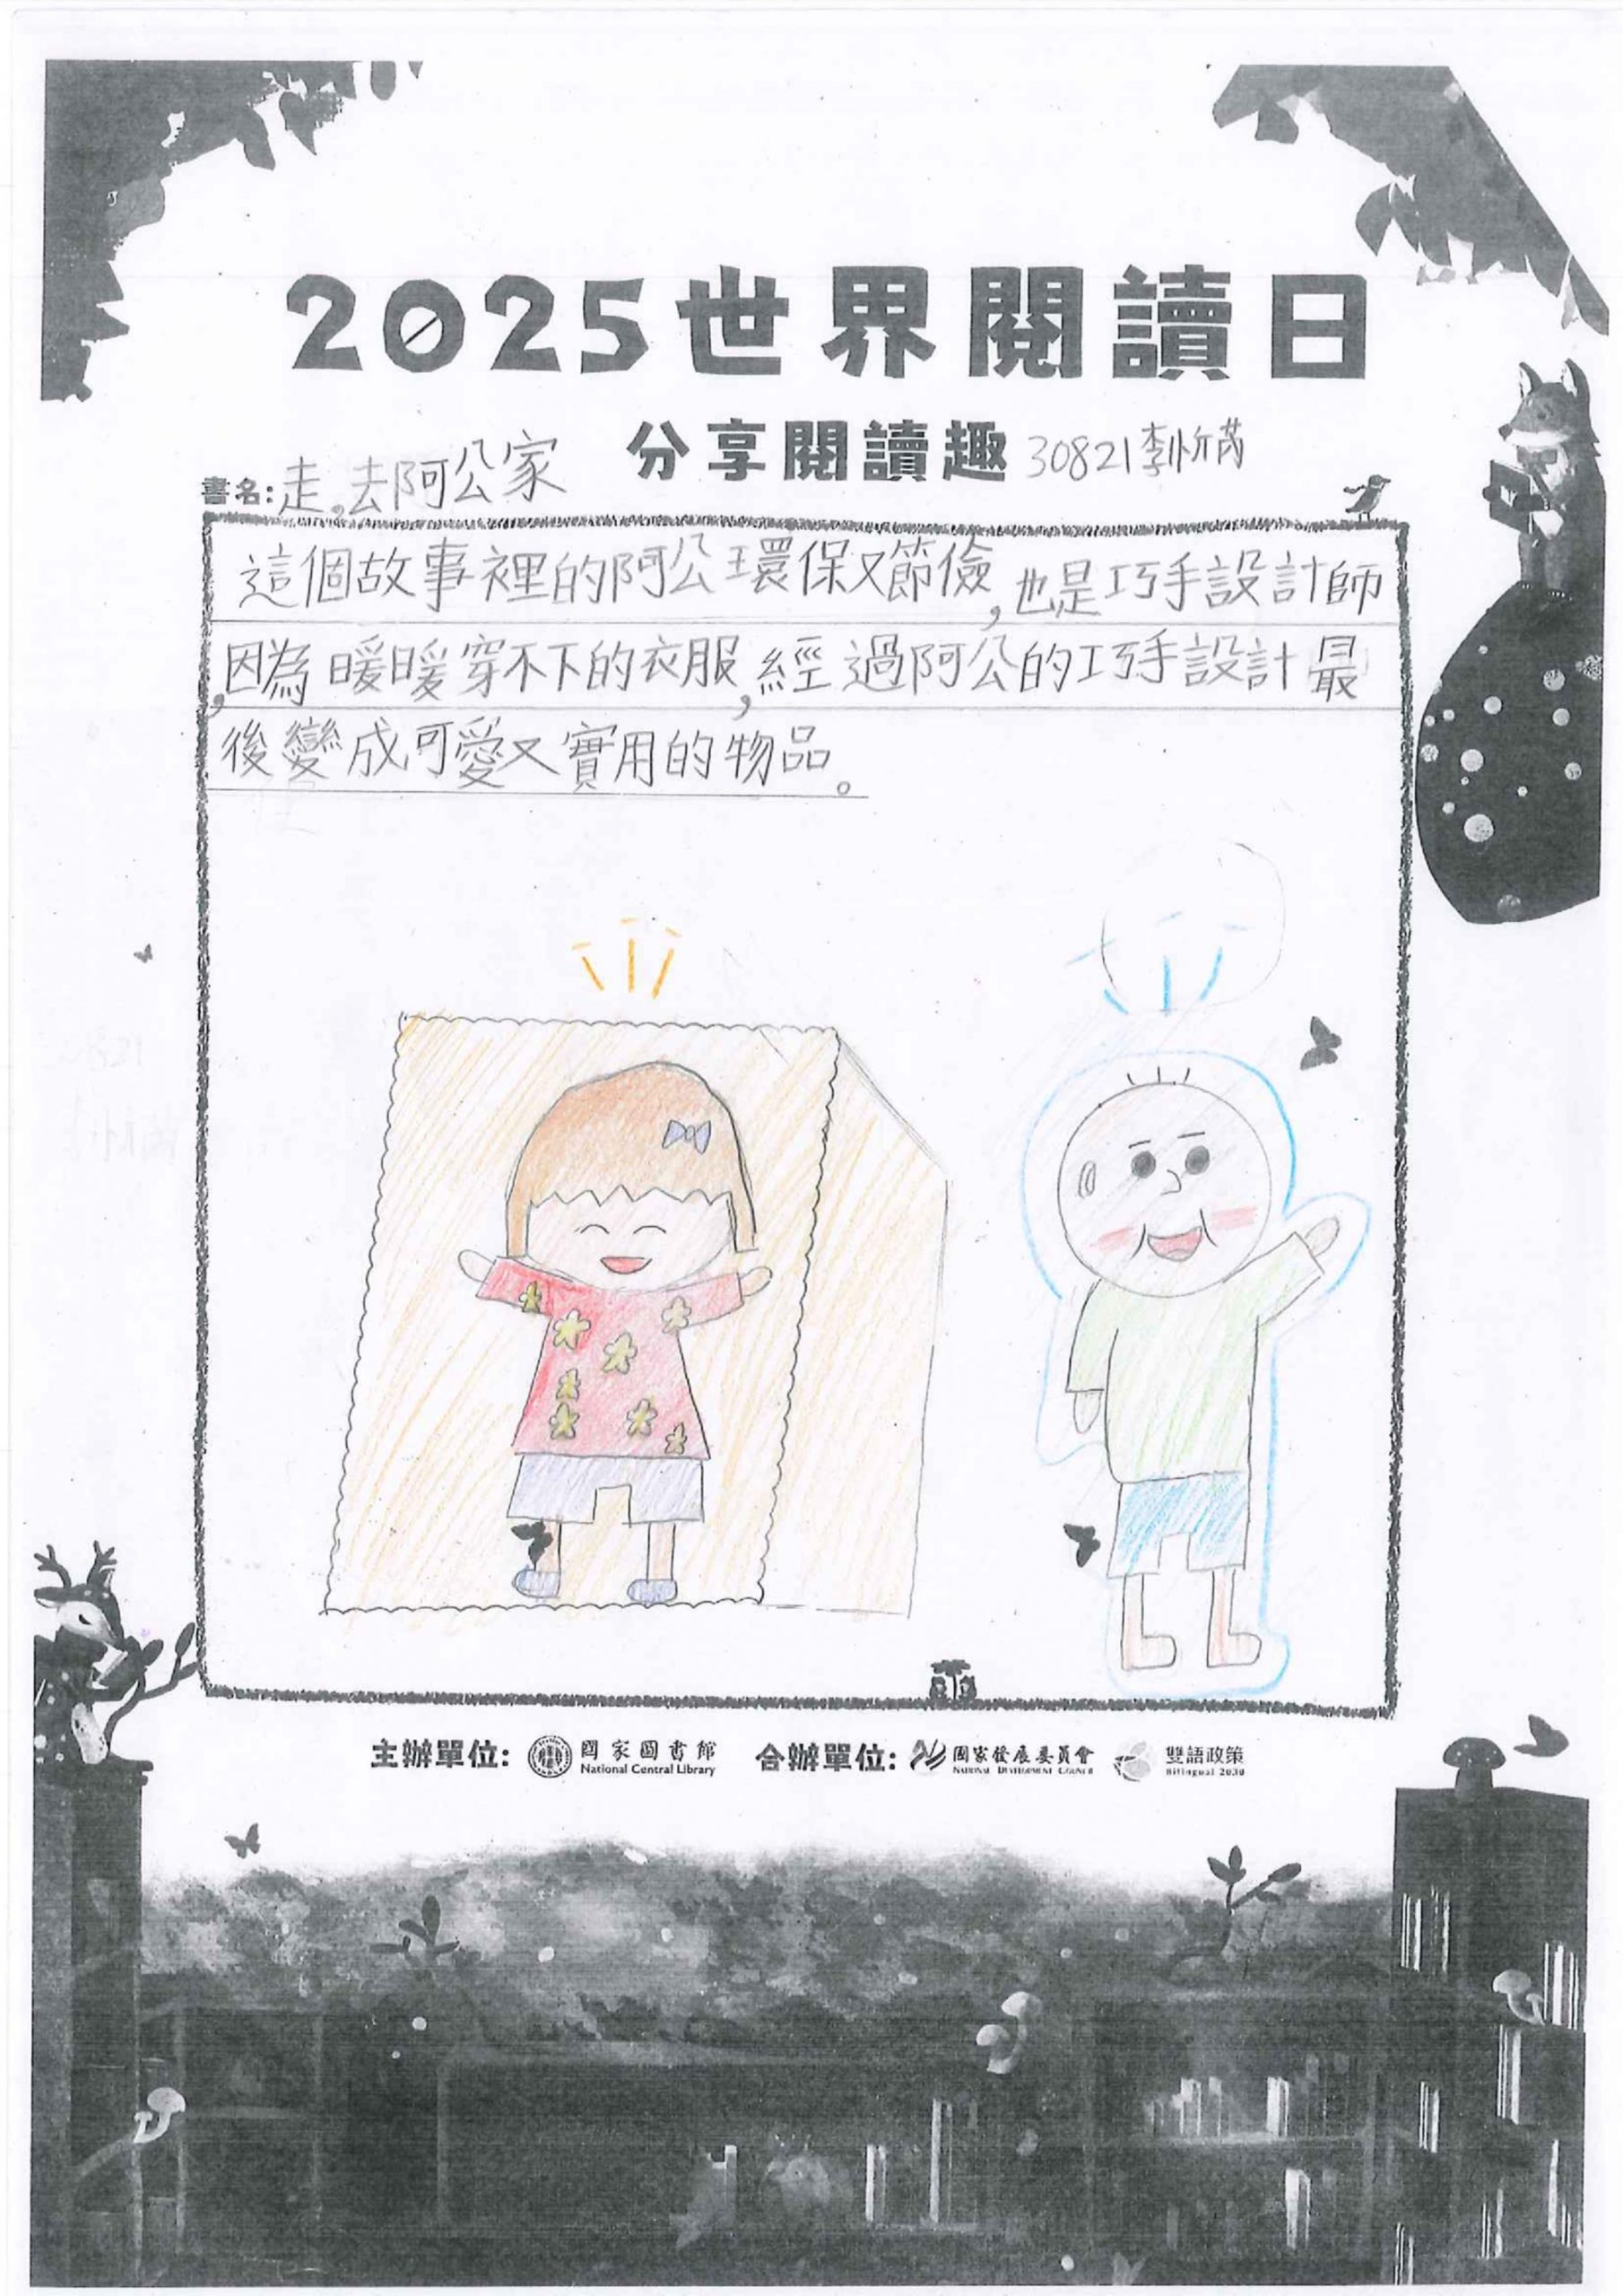 2025世界閱讀日
分享閱讀趣 30821李忻芮
書名:走,去阿公家
這個故事裡的阿公環保又節儉,也是巧手設計師
,因為暖暖穿不下的衣服,經過阿公的巧手設計最
後變成可愛又實用的物品。
主辦單位: 國家圖書館 National Central Library 合辦單位: 國家發展委員會 National Development Council 雙語政策 Bilingual 2030